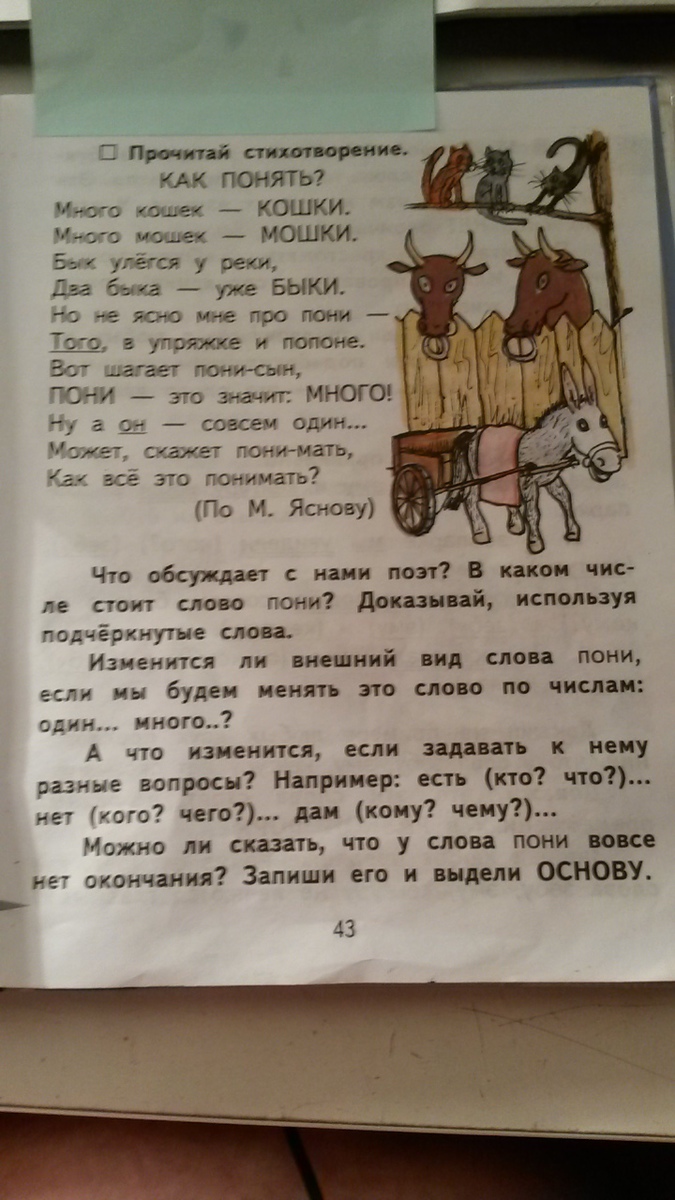 □ Прочитай стихотворение.
КАК ПОНЯТЬ?
Много кошек — КОШКИ.
Много мошек — МОШКИ.
Бык улёгся у реки,
Два быка — уже БЫКИ.
Но не ясно мне про пони —
Того, в упряжке и попоне.
Вот шагает пони-сын,
ПОНИ — это значит: МНОГО!
Ну а он — совсем один...
Может, скажет пони-мать,
Как всё это понимать?
(По М. Яснову)
Что обсуждает с нами поэт? В каком чис-
ле стоит слово пони? Доказывай, используя
подчёркнутые слова.
Изменится ли внешний вид слова пони,
если мы будем менять это слово по числам:
один... много..?
А что изменится, если задавать к нему
разные вопросы? Например: есть (кто? что?)...
нет (кого? чего?)... дам (кому? чему?)...
Можно ли сказать, что у слова пони вовсе
нет окончания? Запиши его и выдели ОСНОВУ.
43